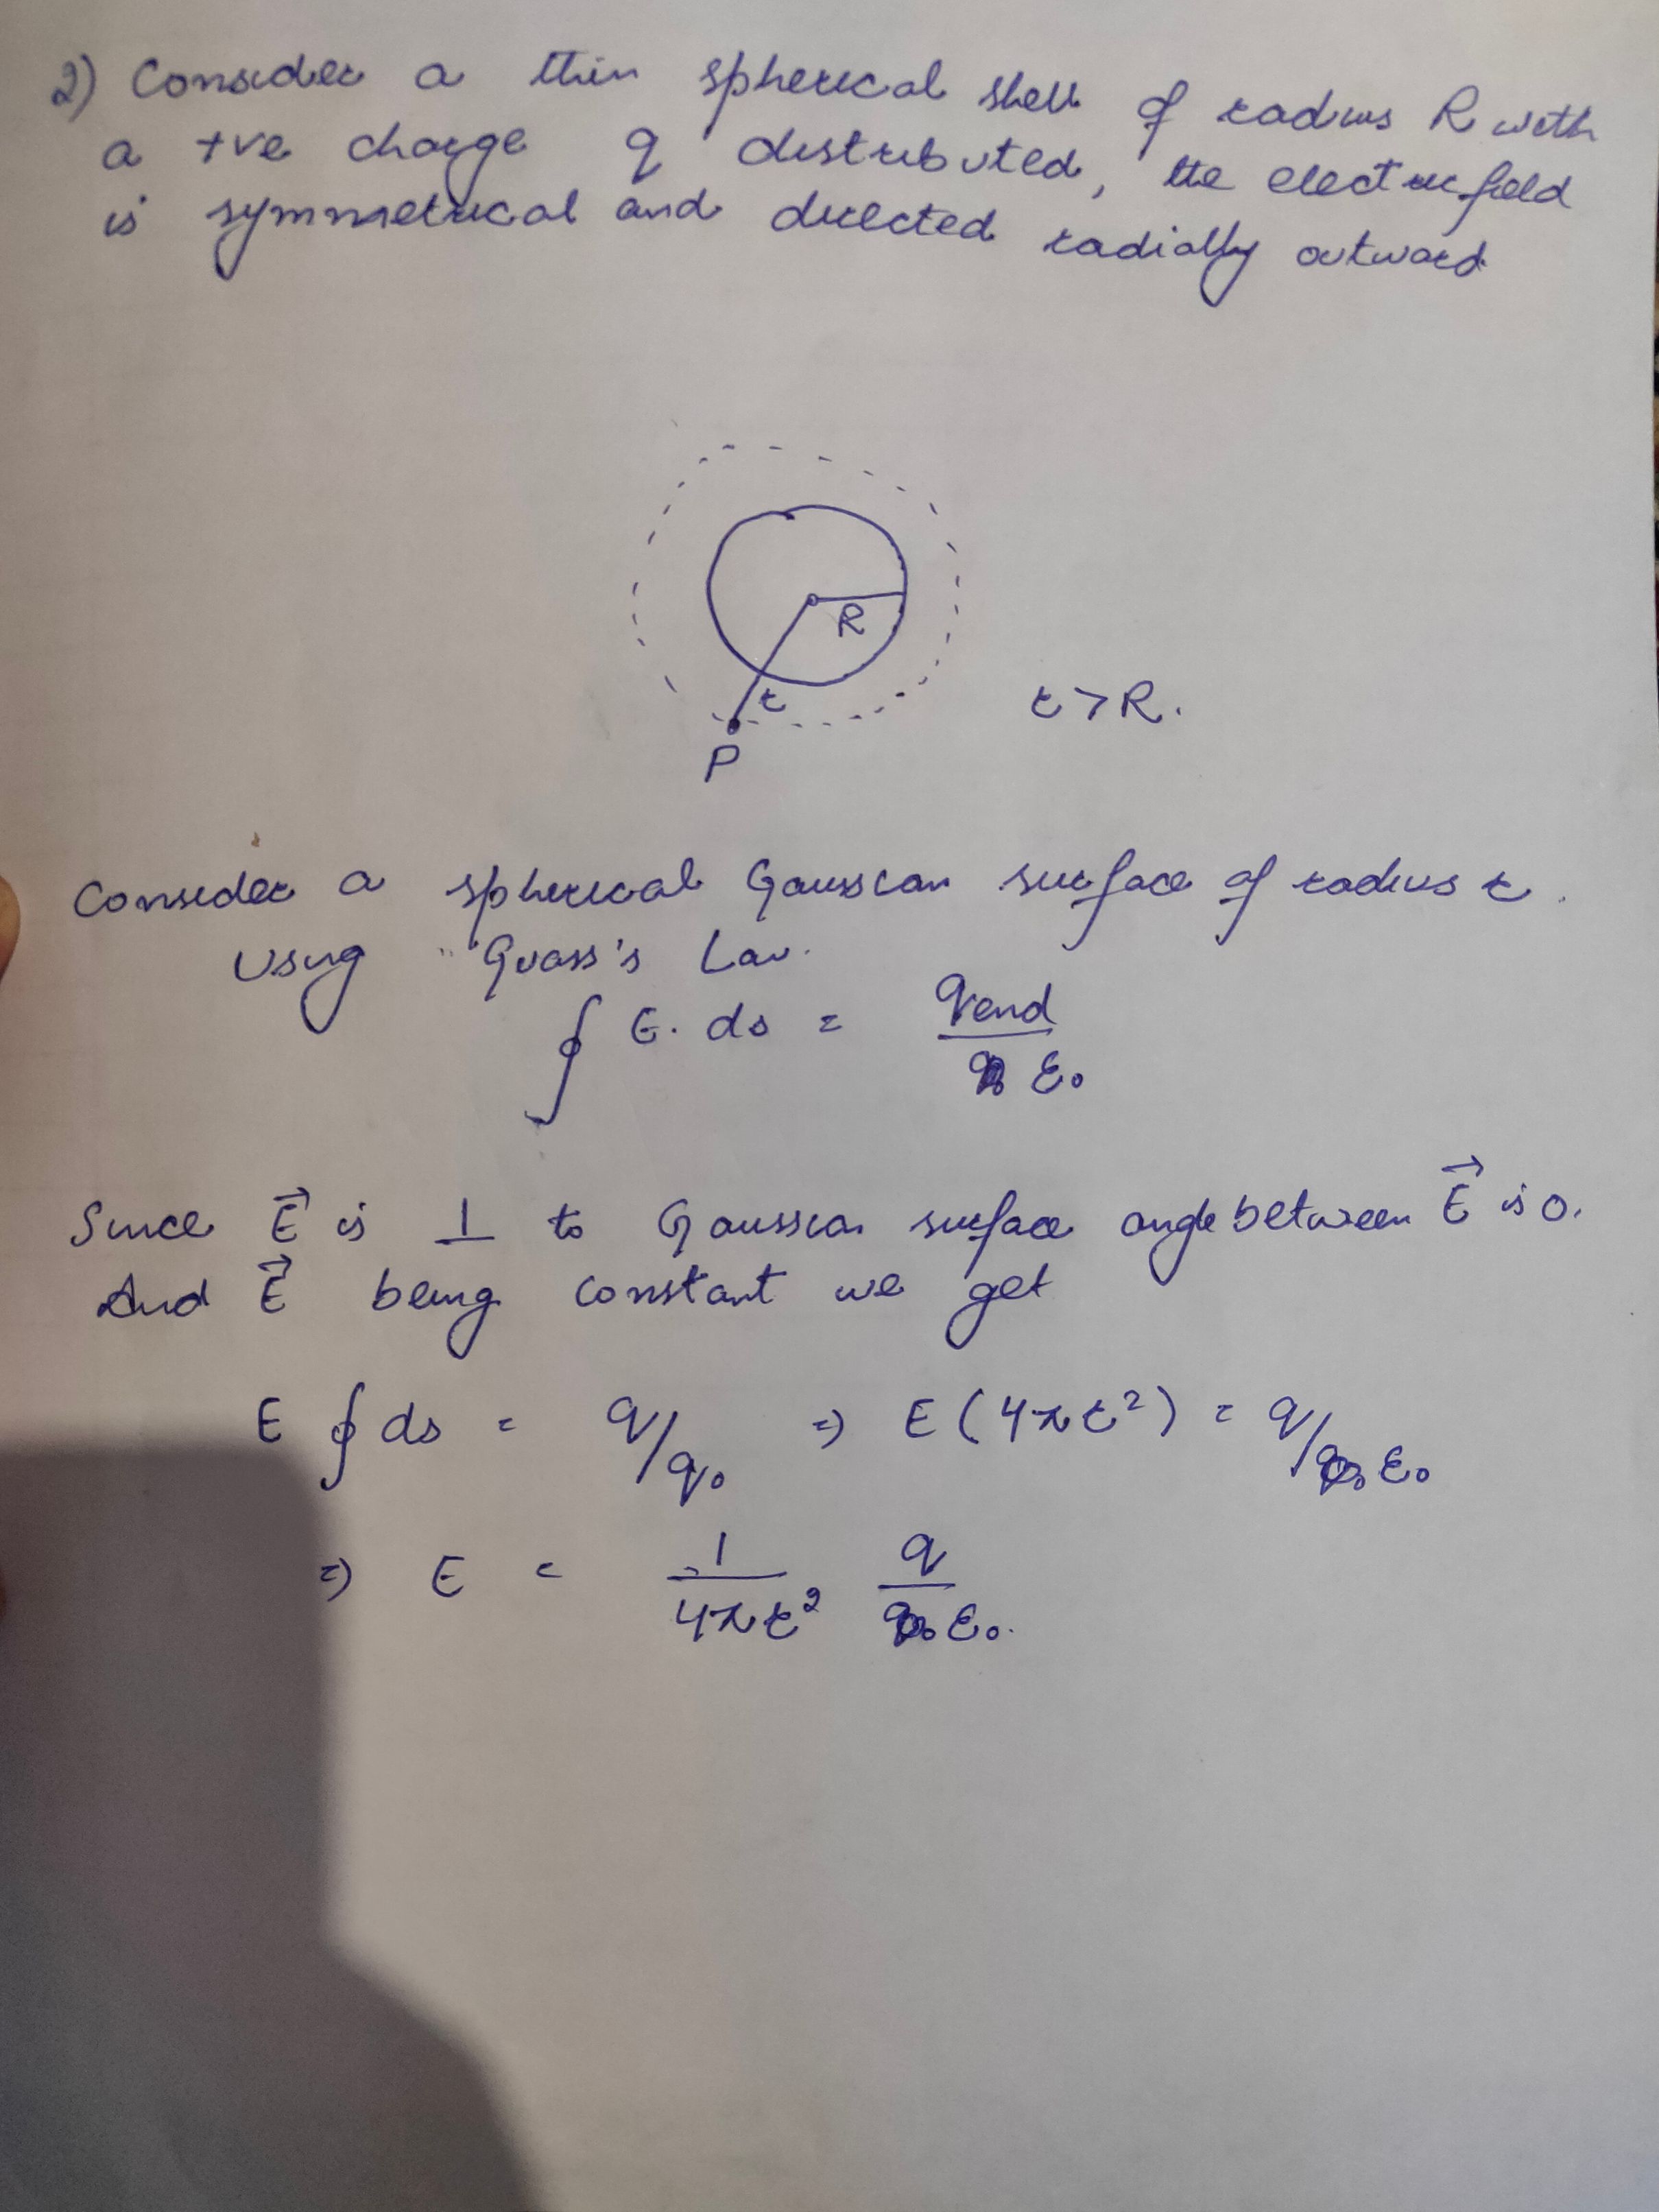 2) Consider a thin spherical shell of radius R with
a +ve charge q distributed, the electric field
is symmetrical and directed radially outward
R
r
r > R.
P
Consider a spherical Gaussian surface of radius r.
Using Guass's Law.
∮ E. ds = qend / ε₀
Since E⃗ is ⊥ to Gaussian surface angle between E⃗ is 0.
And E⃗ being constant we get
E ∮ ds = q/q₀ ⇒ E (4πr²) = q/ε₀
⇒ E = 1/4πr² q/ε₀.